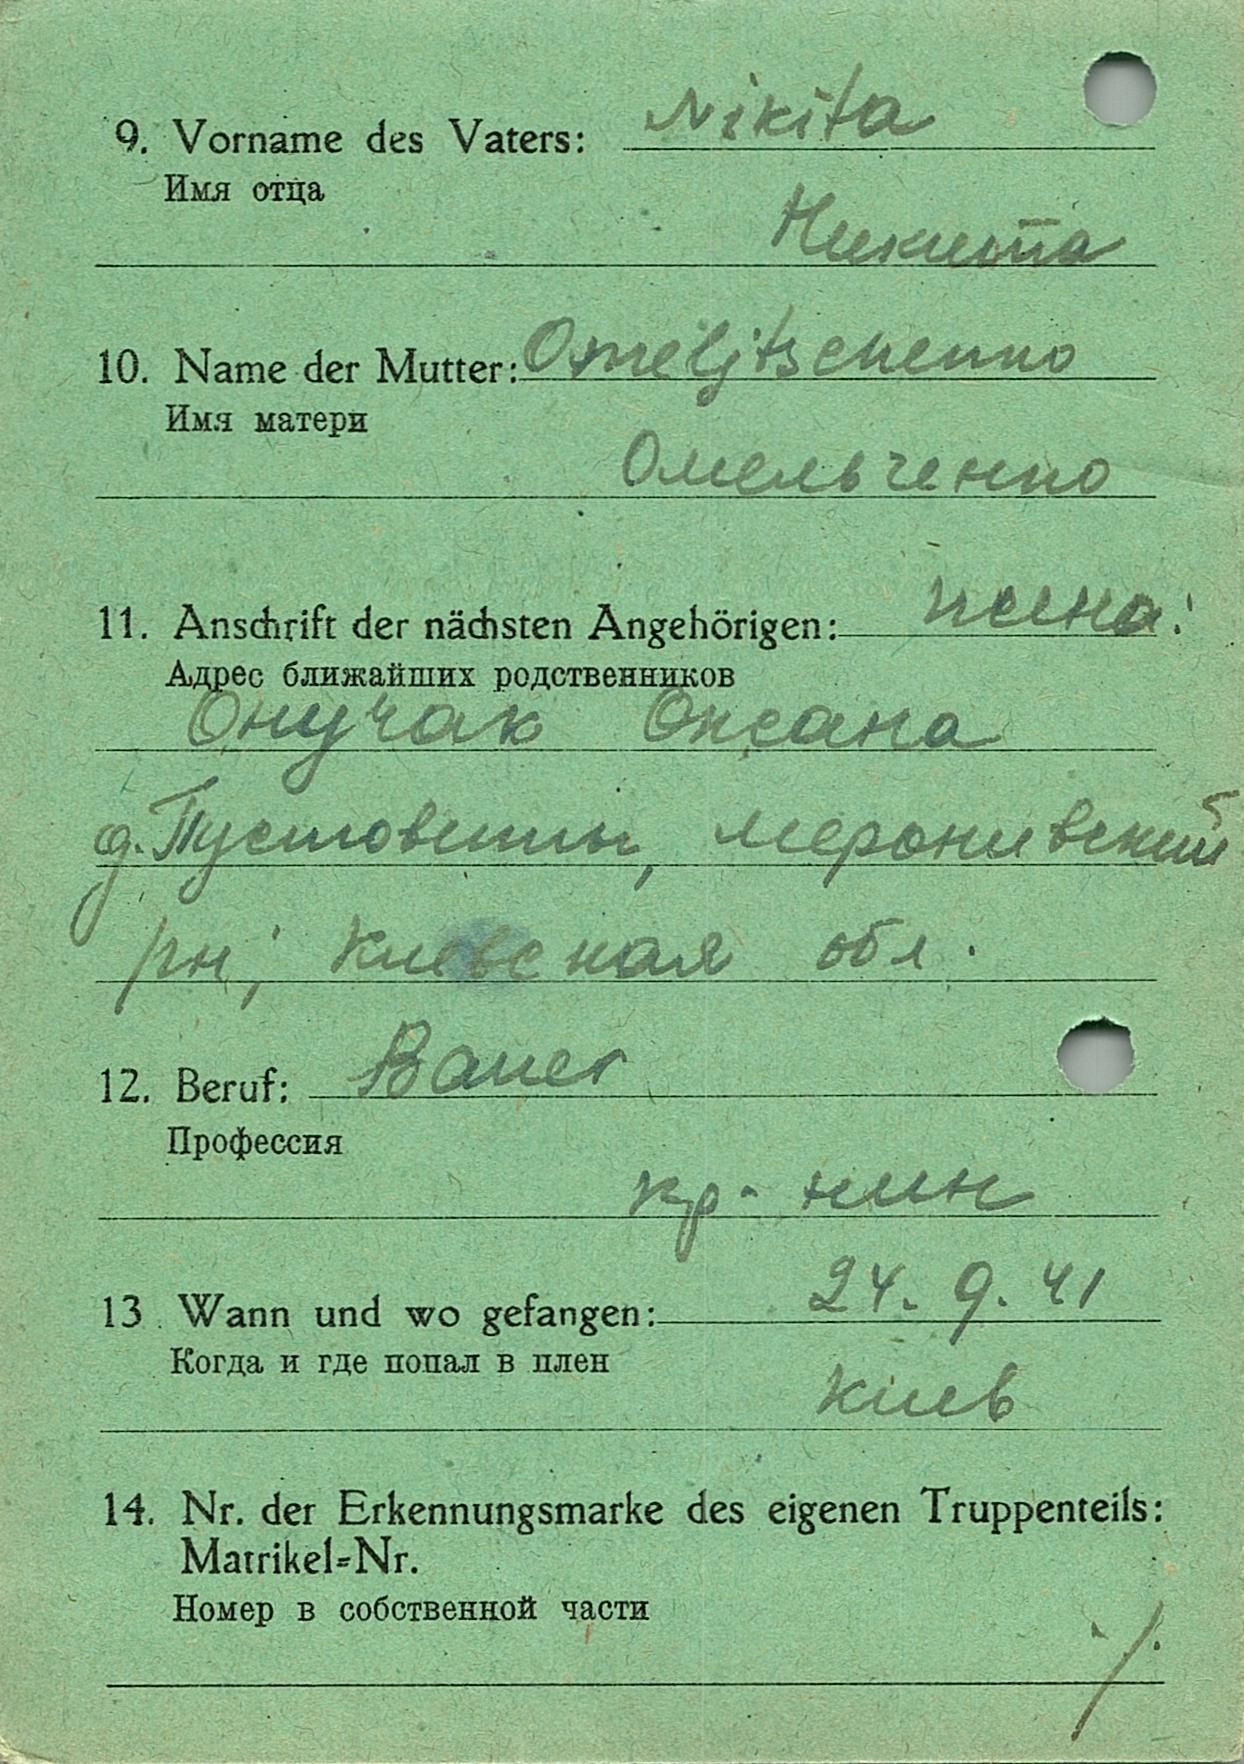 9. Vorname des Vaters: Nikita
Имя отца
Никита
10. Name der Mutter: Omeljtschenno
Имя матери
Омельченно
11. Anschrift der nächsten Angehörigen: жена:
Адрес ближайших родственников
Онучак Оксана
д. Пустовиты, меронивский
рн, Киевская обл.
12. Beruf: Bauer
Профессия
кр-нин
13. Wann und wo gefangen: 24. 9. 41
Когда и где попал в плен
Киев
14. Nr. der Erkennungsmarke des eigenen Truppenteils:
Matrikel-Nr.
Номер в собственной части
·/.